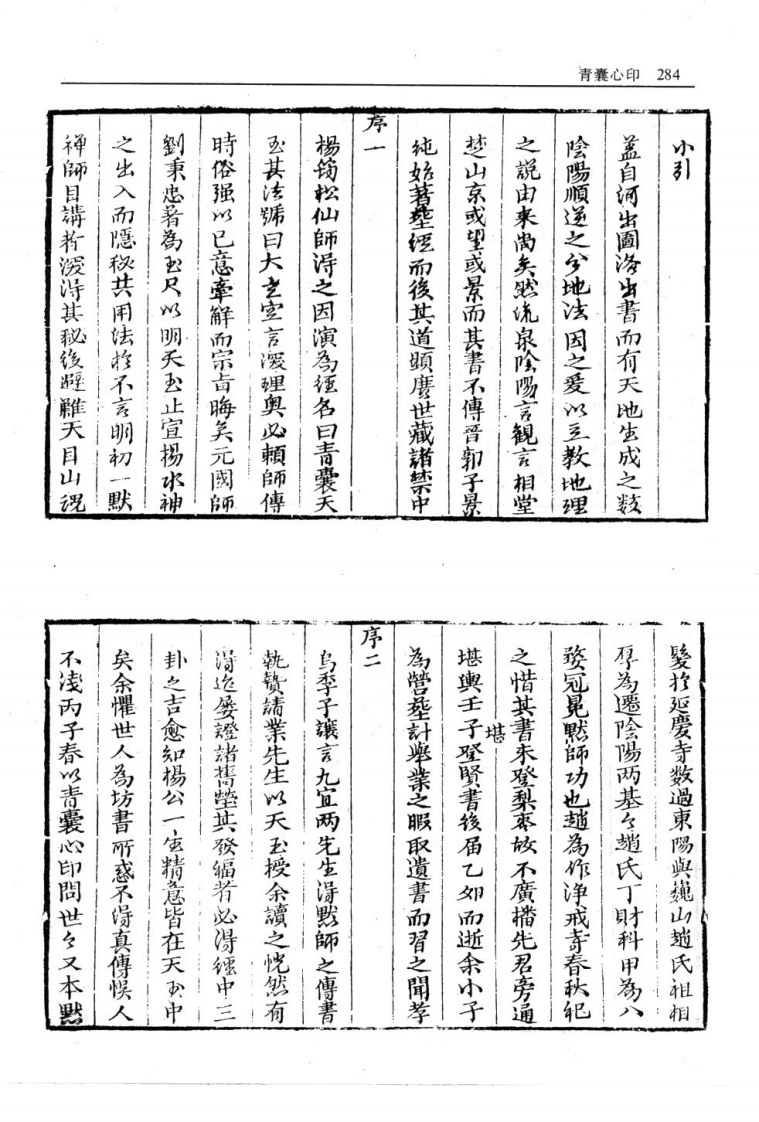 青囊心印 284
小引
蓋自河出圖洛出書而有天地生成之数
陰陽順逆之分地法因之爰以立教地理
之說由来尚矣然流泉陰陽言觀言相堂
楚山京或望或景而其書不傳晉郭子景
純始著塟經而後其道顯厯世藏諸禁中
序一
楊筠松仙師得之因演為經名曰青囊天
玉其法號曰大玄空言深理奥必頼師傳
時俗强以已意牽解而宗旨晦矣元國師
劉秉忠著為玉尺以明天玉止宜楊水神
之出入而隱秘其用法於不言明初一默
禅師目講者深得其秘後避難天目山祝
髮於延慶寺数過東陽與巍山趙氏祖相
厚為遷陰陽两基々趙氏丁財科甲為八
婺冠晃默師功也趙為作淨戒寺春秋祀
之惜其書未登梨枣故不廣播先君旁通
堪
堪輿壬子登賢書後届乙卯而逝余小子
為營塟計舉業之暇取遺書而習之聞孝
序二
烏季子讓言九宜两先生得黙師之傳書
執贄請業先生以天玉授余讀之恍然有
得迄屡證諸舊塋其發福者必得經中三
卦之吉愈知楊公一生精意皆在天玉中
矣余懼世人為坊書所惑不得真傳悞人
不淺丙子春以青囊心印問世々又本黙